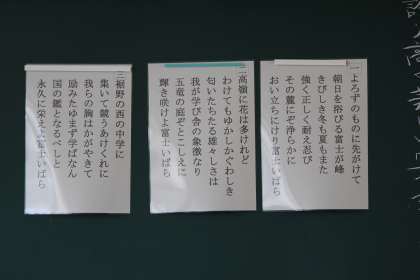 一 よろずのものに先がけて
朝日を浴びる富士が峰
きびしき冬も夏もまた
強く正しく耐え忍び
その麓にぞ浄らかに
おい立ちにけり富士いばら
二 高嶺に花は多けれど
わけてもゆかしかぐわしき
匂いたちたる雄々しさは
我が学び舎の象徴なり
五竜の庭ぞとこしえに
輝き咲けよ富士いばら
三 裾野の西の中学に
集いて競うあけくれに
我らの胸はかがやきて
励みたゆまず学ばなん
国の鑑となるべしと
永久に栄えよ富士いばら